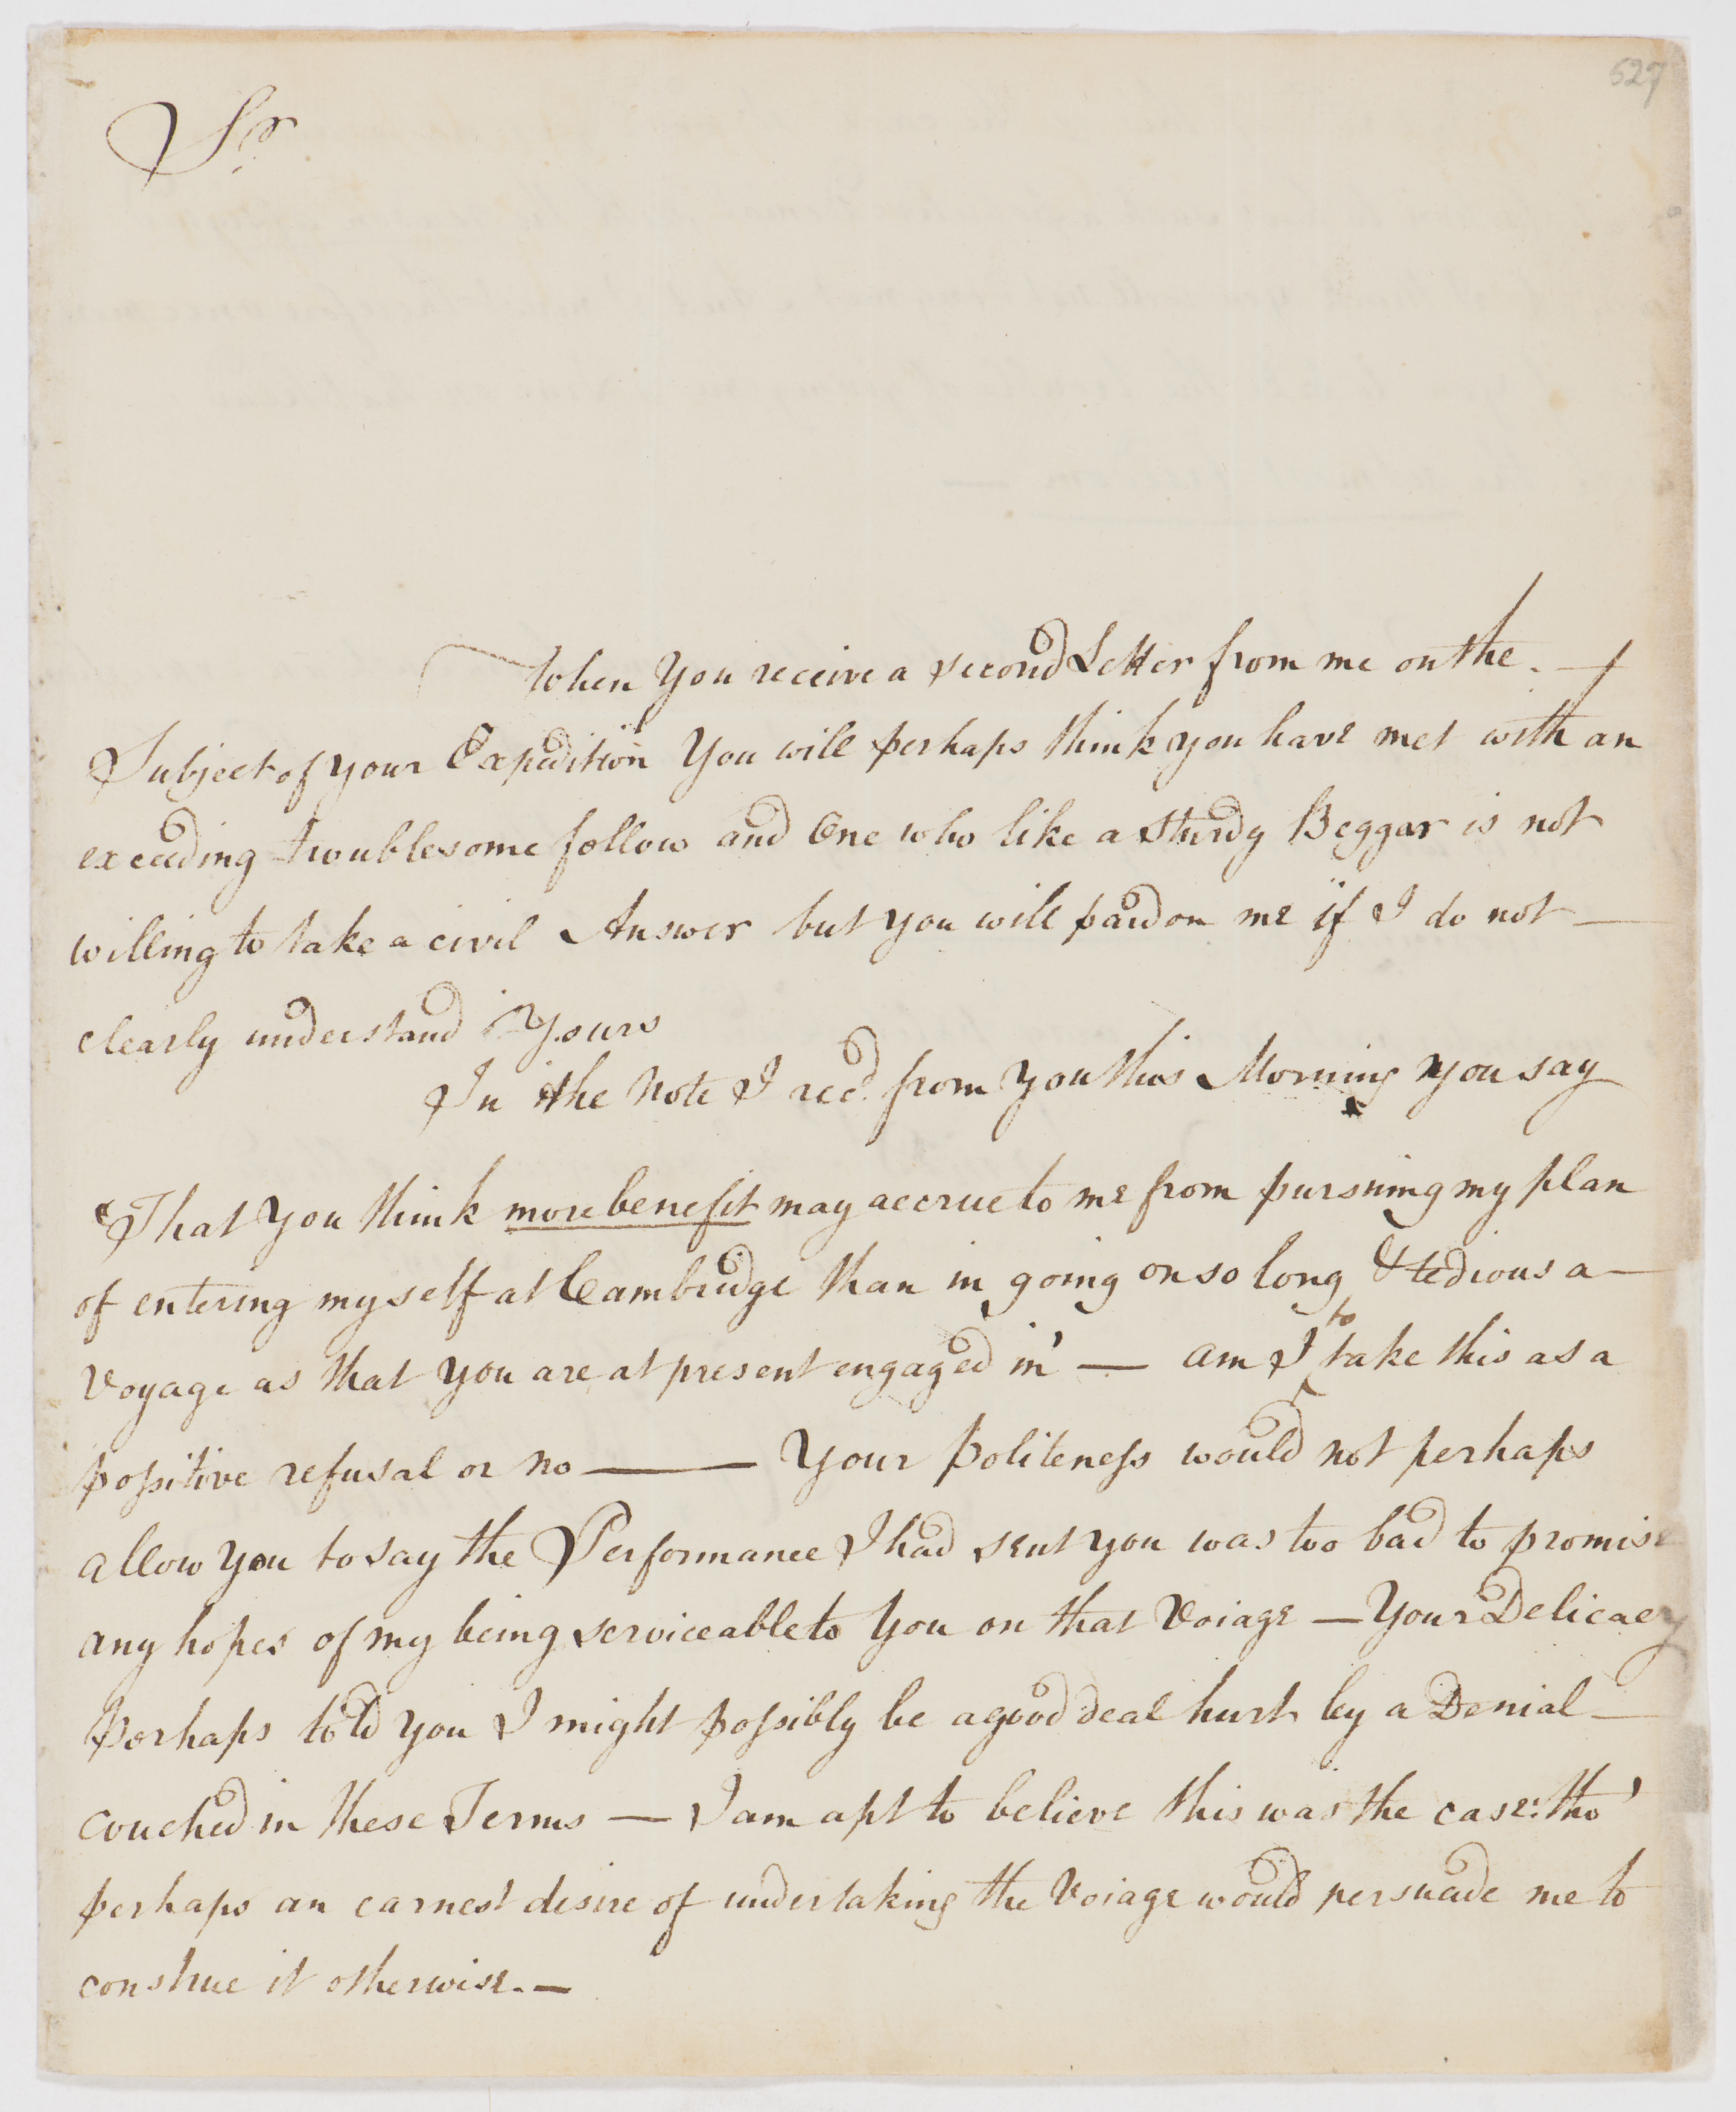 527
Sr.
When you receive a second Letter from me on the —
Subject of your Expedition You will perhaps think you have met with an
exceeding troublesome fellow and One who like a sturdy Beggar is not
willing to take a civil Answer but you will pardon me if I do not —
clearly understand Yours
In the Note I recd. from you this Morning you say
"That you think more benefit may accrue to me from pursuing my plan
of entering myself at Cambridge than in going on so long & tedious a —
Voyage as that you are at present engaged in' — am I to take this as a
possitive refusal or no — Your Politeness would not perhaps
allow you to say the Performance I had sent you was too bad to promise
any hopes of my being serviceable to You on that Voiage — Your Delicacy
Perhaps told you I might possibly be a good deal hurt by a Denial —
couched in these Terms — I am apt to believe this was the case: tho'
perhaps an earnest desire of undertaking the Voiage would persuade me to
construe it otherwise. —